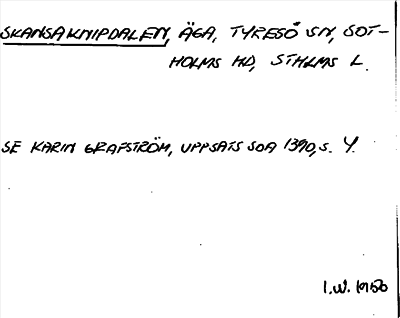 SKANSAKNIPDALEN, ÄGA, TYRESÖ SN, SOT-
HOLMS HD, STHLMS L.
SE KARIN GRAFSTRÖM, UPPSATS SOA 1390, S. 4.
I.W. 1956